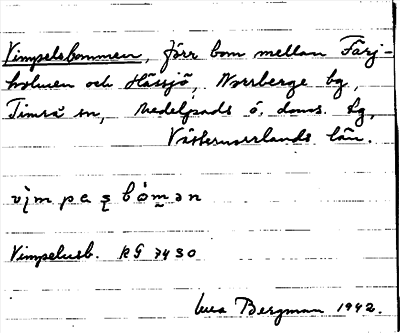 Vimpelsbommen, förr bom mellan Färj-
holmen och Hässjö, Norrberge by,
Timrå sn, Medelpads ö. doms. tg,
Västernorrlands län.
Vimpelusb. RG 7430
Bergman 1942.